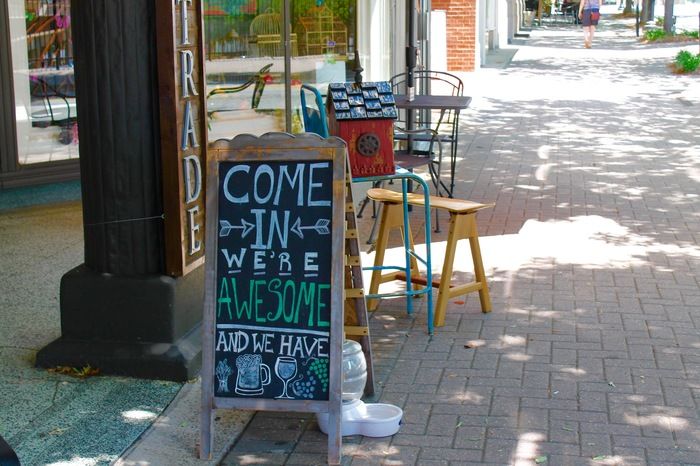 TRADE
COME
IN
WE'RE
AWESOME
AND WE HAVE